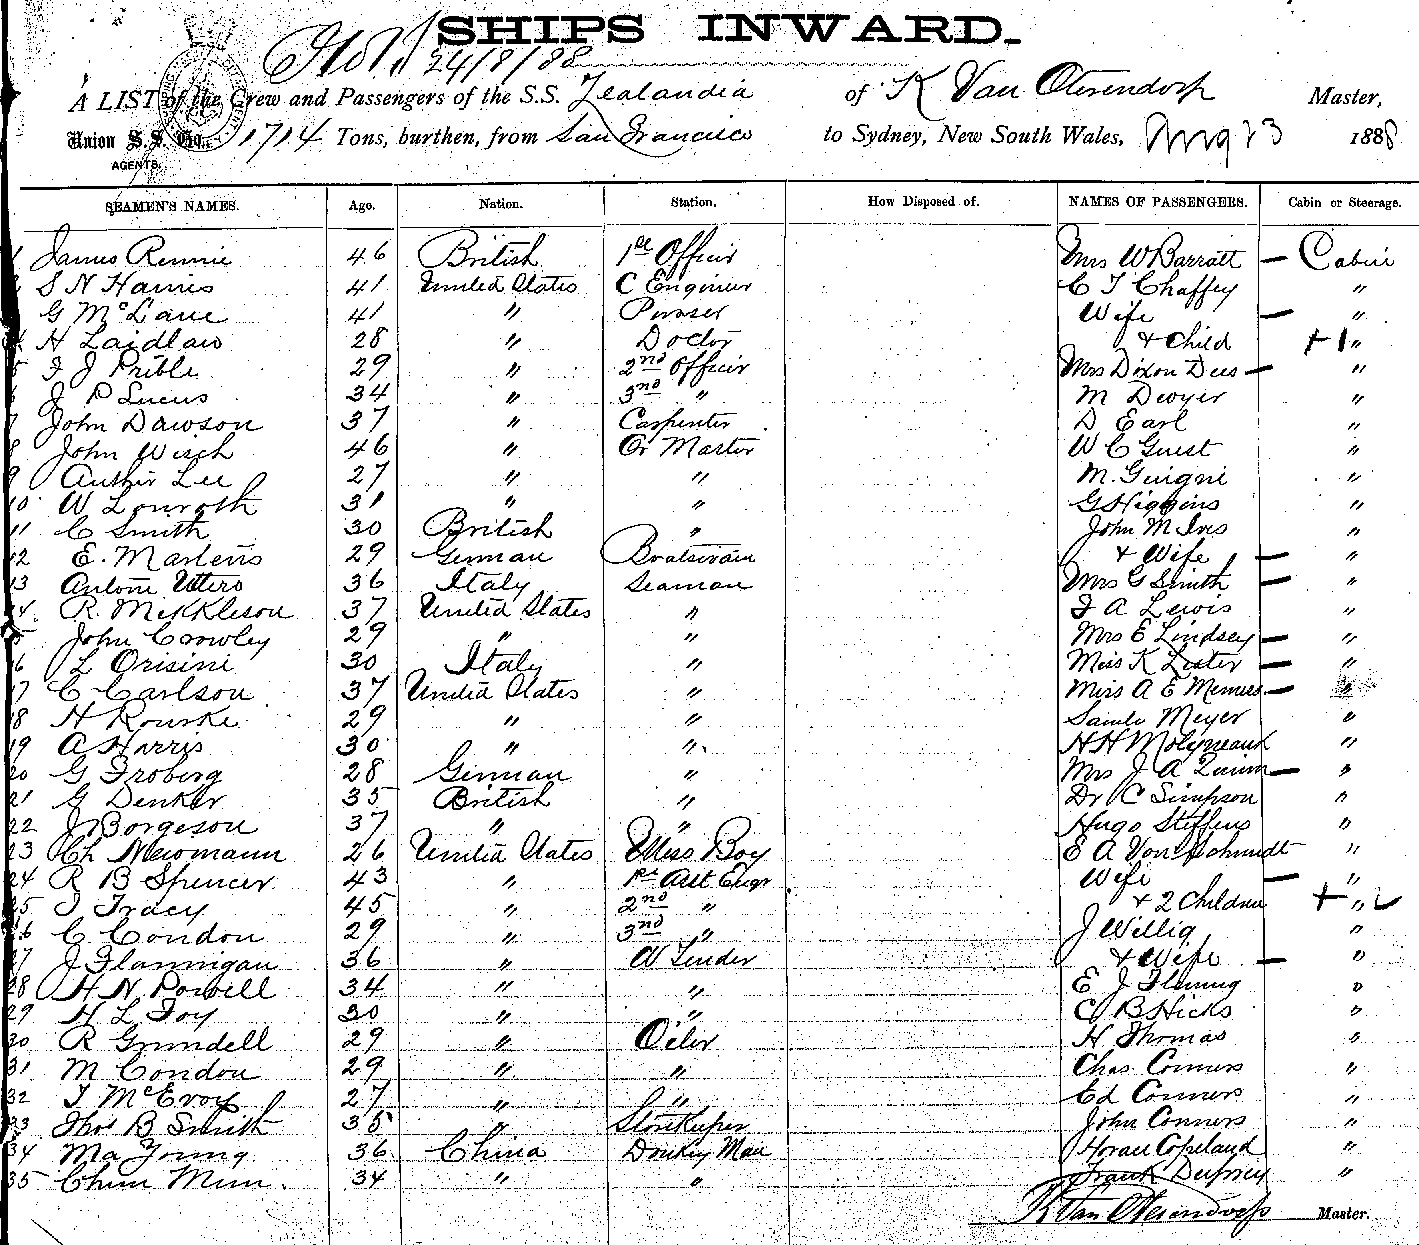 SHIPS INWARD.
24/8/88
A LIST of the Crew and Passengers of the S.S. Zealandia of K Van Oterendorp Master,
Union S.S. Co., 1714 Tons, burthen, from San Francisco to Sydney, New South Wales, Aug 23 1888
AGENTS.
SEAMEN'S NAMES. Age. Nation. Station. How Disposed of. NAMES OF PASSENGERS. Cabin or Steerage.
1 James Rennie 46 British 1st Officer Mrs W Barratt — Cabin
S N Harris 41 United States C Engineer C T Chaffey "
G McLane 41 " Purser Wife — "
4 H Laidlaw 28 " Doctor + Child + 1 "
5 J J Prible 29 " 2nd Officer Mrs Dixon Dees — "
6 J P Lucus 34 " 3rd " M Dwyer "
7 John Dawson 37 " Carpenter D Earl "
8 John Wisch 46 " Qr Master W C Guest "
9 Authir Lee 27 " " M. Guigni "
10 W Lonroth 31 " " G Higgins "
11 C Smith 30 British " John M Ives "
12 E. Martens 29 German Boatswain + Wife — "
13 Antoni 36 Italy Seaman Mrs G Smith — "
14 R. Mekkleson 37 United States " F A Lewis "
15 John Crowley 29 " " Mrs E Lindsey — "
16 L Orisini 30 Italy " Miss K Lister — "
17 C Carlson 37 United States " Miss A E — "
18 H Rourke 29 " " Meyer "
19 A Harris 30 " " H H Molyneaux "
20 G Froberg 28 German " Mrs J A Quinn — "
21 G Denker 35 British " Dr C Simpson "
22 J Borgeson 37 " " Hugo Steffens "
23 Ch Newmann 26 United States Mess Boy E A Von Schmidt "
24 R B Spencer 43 " 1st Asst Engr Wife — "
25 J Tracy 45 " 2nd " + 2 Children + "
26 C Condon 29 " 3rd " J Willig "
27 J Flannigan 36 " W Tender + Wife — "
28 H N Powell 34 " " E J Fleming "
29 H L Foy 30 " " C B Hicks "
30 R Grundell 29 " Oiler H Thomas "
31 M Condon 29 " " Chas Conners "
32 T McEvoy 27 " " Ed Conners "
33 Thos B Smith 35 " Storekeeper John Conners "
34 Ma Young 36 China Donkey Man Horace Copeland "
35 Chun Mun. 34 " " Frank "
K Van Oterendorp Master.